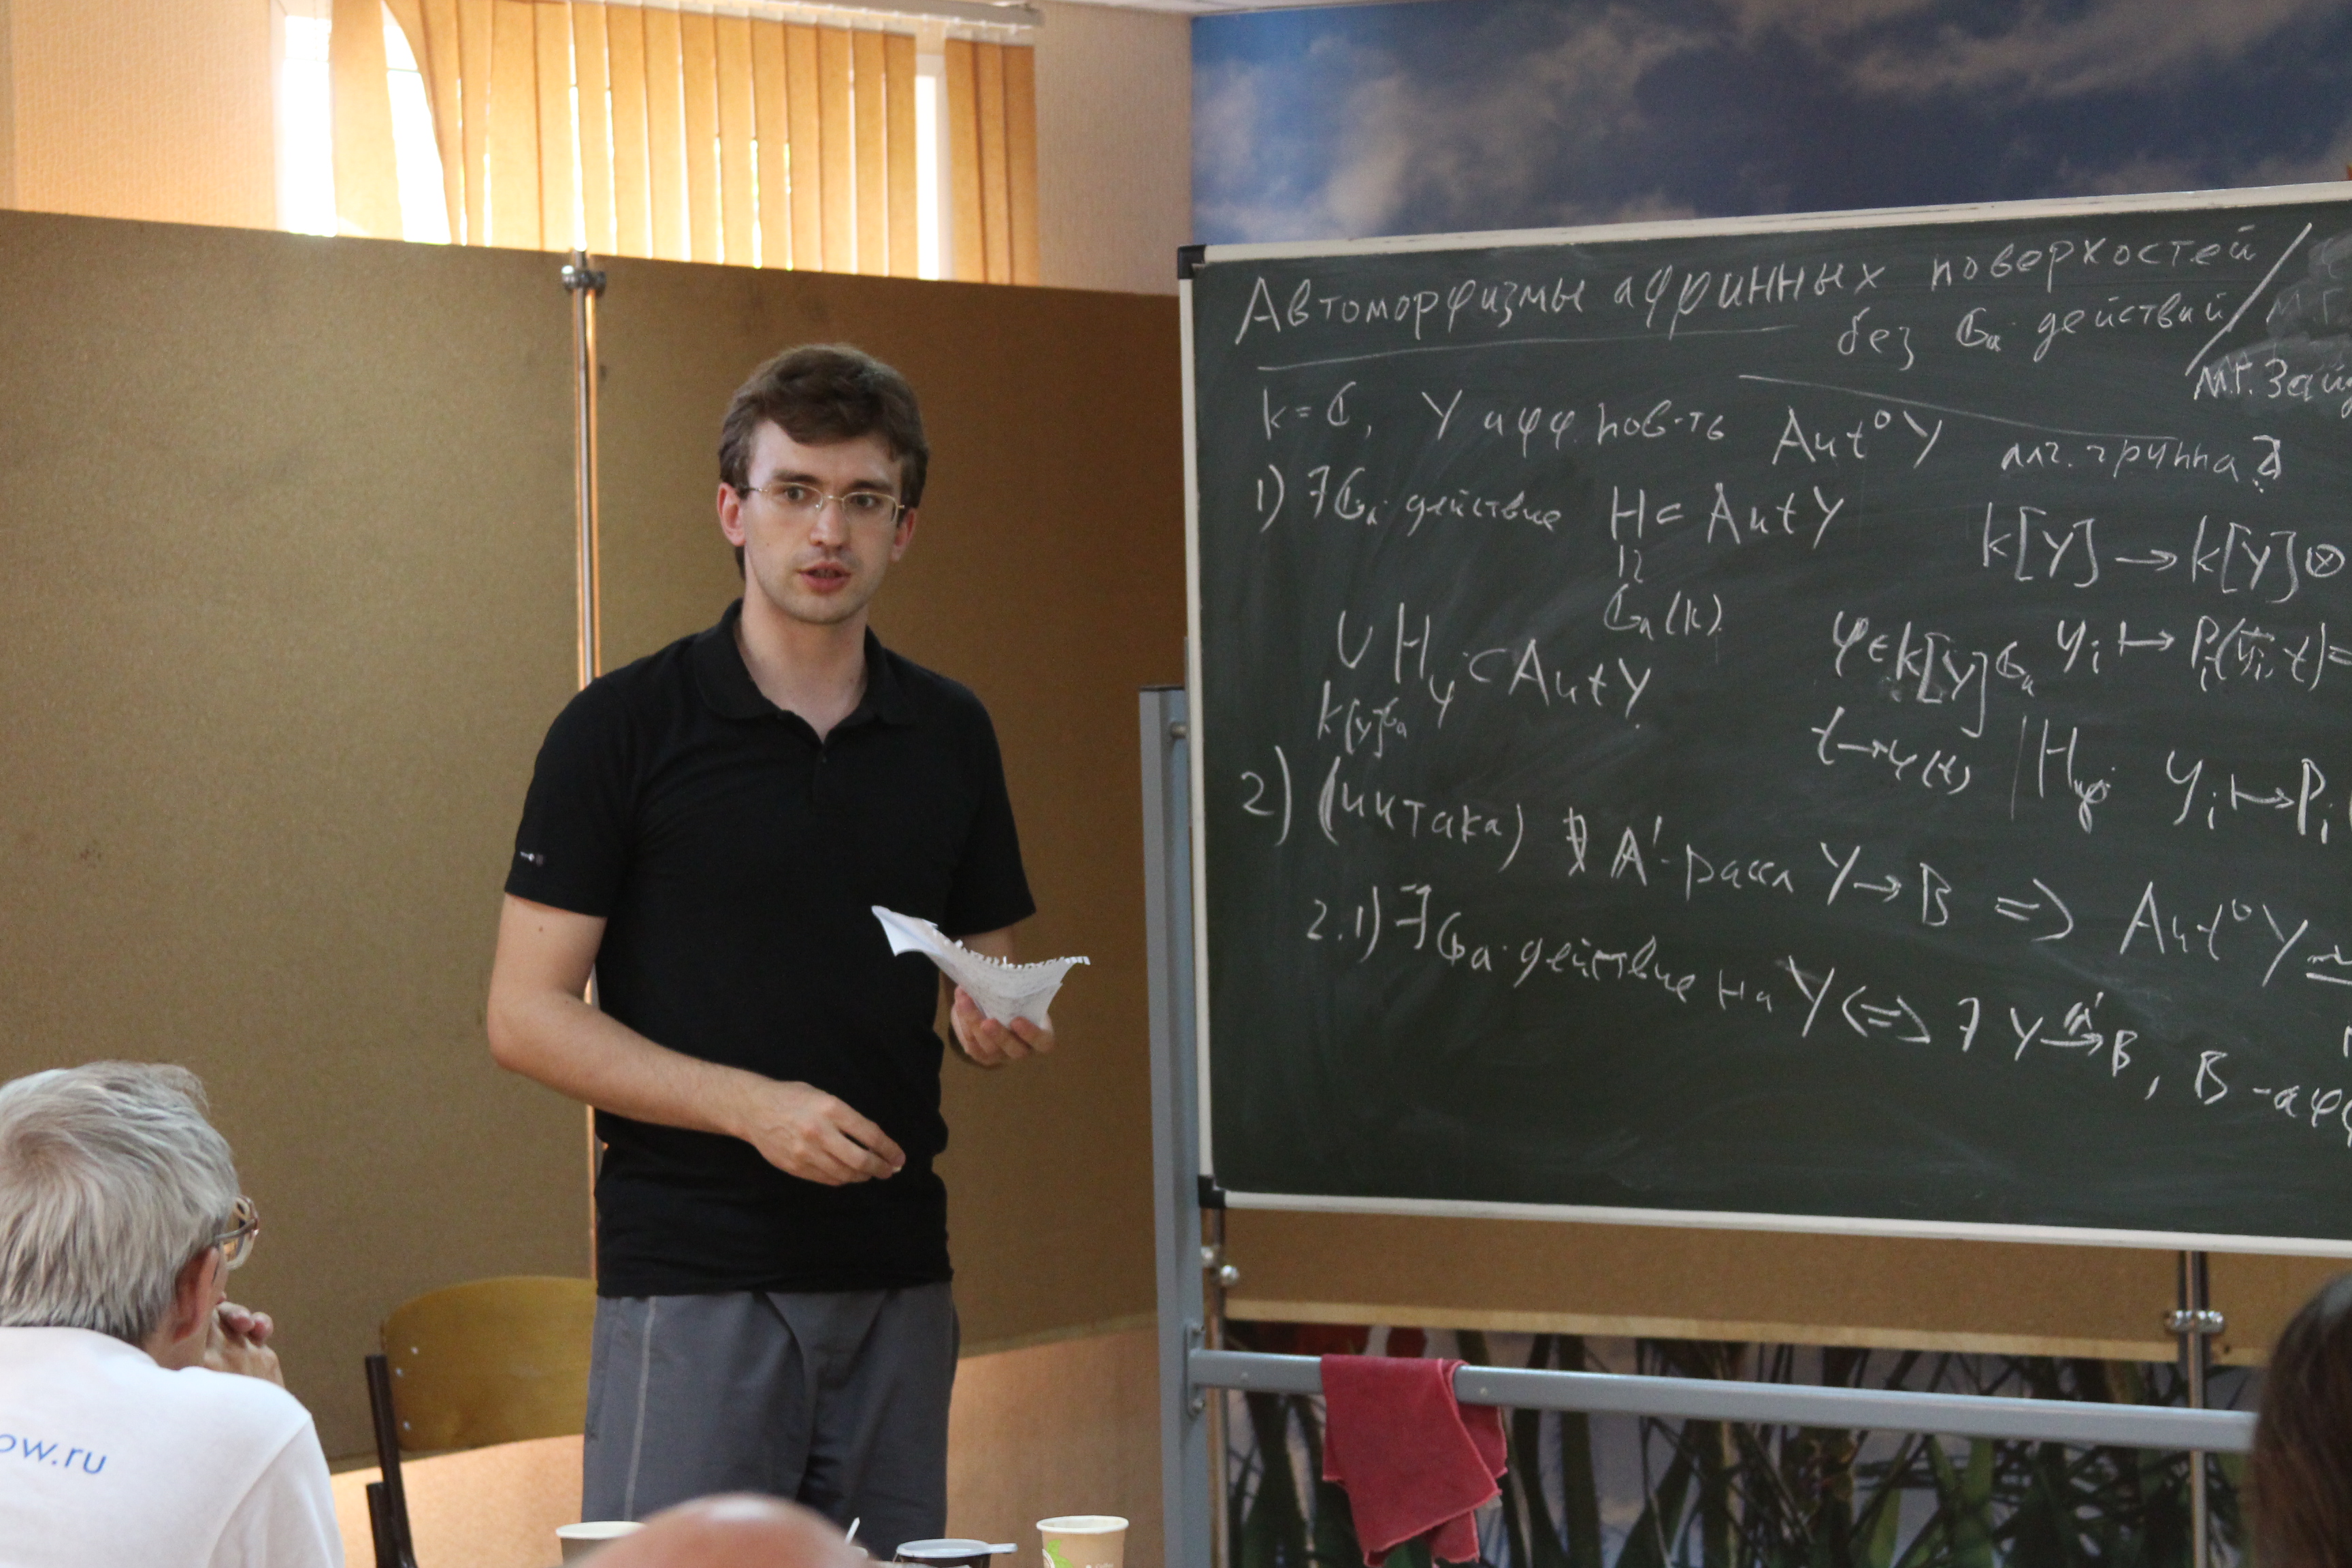 Автоморфизмы аффинных поверхностей
без Gₐ-действий
М.Г. Зай
k = ℂ, Y афф. пов-ть Aut⁰Y алг. группа?
1) ∃Gₐ-действие H ⊂ Aut Y k[Y] → k[Y]⊗
Gₐ(k)
∪H_φ ⊂ Aut Y φ∈k[Y]^Gₐ yᵢ ↦ Pᵢ( , t) =
k[Y]^Gₐ
t→φ(t) H_φ: yᵢ ↦ Pᵢ
2) (иитака) ∄ A¹-рассл Y → B ⇒ Aut⁰Y
2.1) ∃Gₐ-действие на Y ⟺ ∃ Y →^A¹ B, B -афф
ow.ru